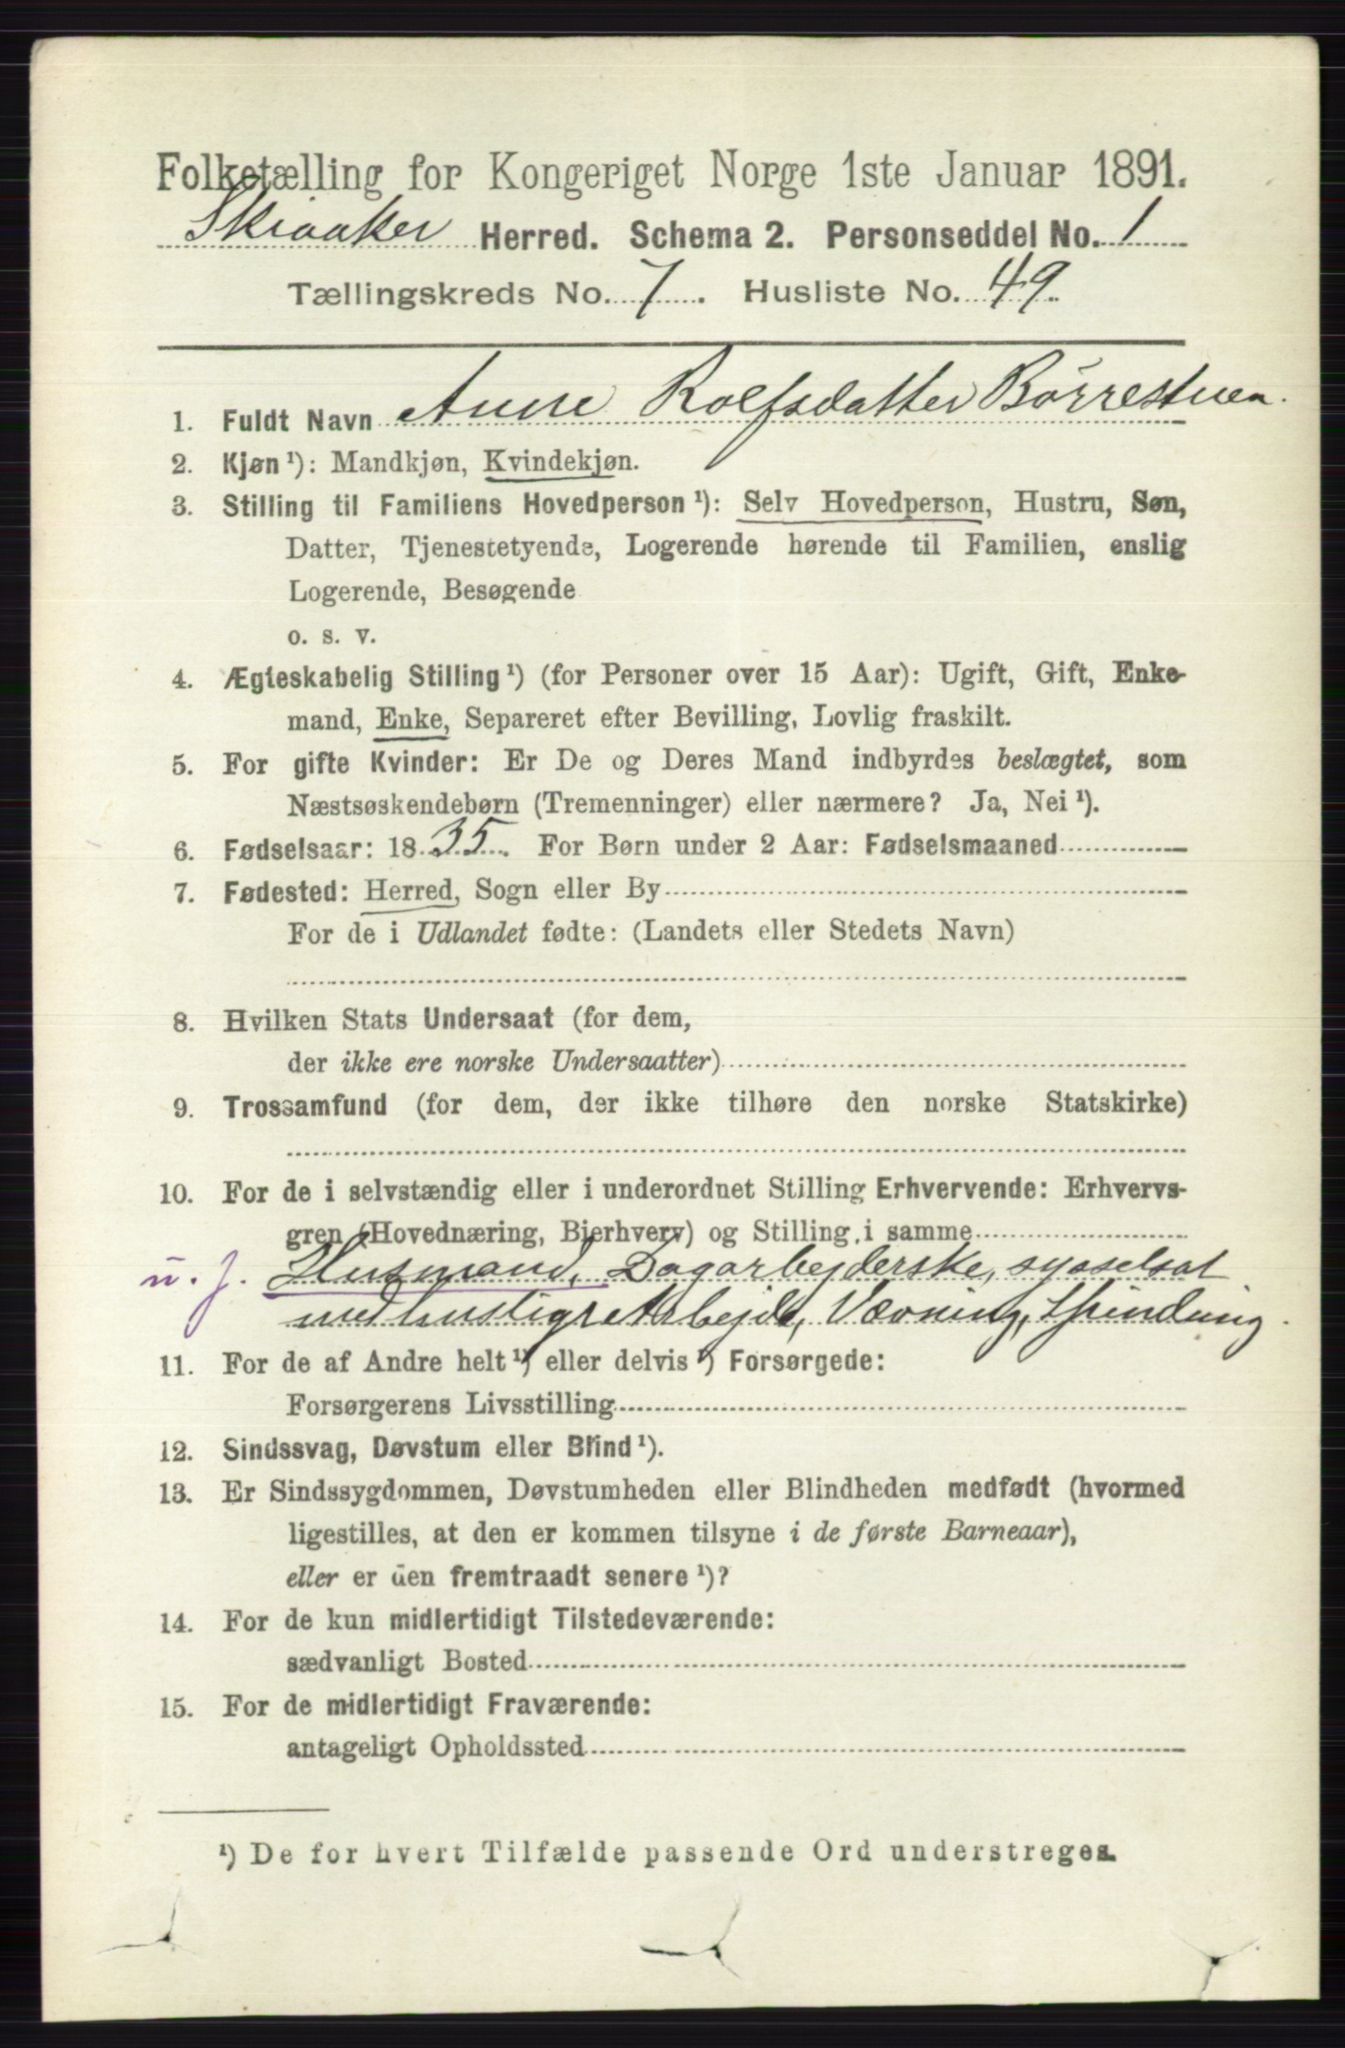 Folketælling for Kongeriget Norge 1ste Januar 1891.
Skiaaker Herred. Schema 2. Personseddel No. 1
Tællingskreds No. 7. Husliste No. 49
1. Fuldt Navn Anne Rolfsdatter Börrestuen.
2. Kjøn ¹): Mandkjøn, Kvindekjøn.
3. Stilling til Familiens Hovedperson ¹): Selv Hovedperson, Hustru, Søn,
Datter, Tjenestetyende, Logerende hørende til Familien, enslig
Logerende, Besøgende
o. s. v.
4. Ægteskabelig Stilling ¹) (for Personer over 15 Aar): Ugift, Gift, Enke-
mand, Enke, Separeret efter Bevilling, Lovlig fraskilt.
5. For gifte Kvinder: Er De og Deres Mand indbyrdes beslægtet, som
Næstsøskendebørn (Tremenninger) eller nærmere? Ja, Nei ¹).
6. Fødselsaar: 1835. For Børn under 2 Aar: Fødselsmaaned
7. Fødested: Herred, Sogn eller By
For de i Udlandet fødte: (Landets eller Stedets Navn)
8. Hvilken Stats Undersaat (for dem,
der ikke ere norske Undersaatter)
9. Trossamfund (for dem, der ikke tilhøre den norske Statskirke)
10. For de i selvstændig eller i underordnet Stilling Erhvervende: Erhvervs-
gren (Hovednæring, Bierhverv) og Stilling i samme
u. j. Husmand, Dagarbejderske, sysselsat
med husligt Arbejde, Vævning, Spinding.
11. For de af Andre helt ¹) eller delvis ¹) Forsørgede:
Forsørgerens Livsstilling
12. Sindssvag, Døvstum eller Blind ¹).
13. Er Sindssygdommen, Døvstumheden eller Blindheden medfødt (hvormed
ligestilles, at den er kommen tilsyne i de første Barneaar),
eller er den fremtraadt senere ¹)?
14. For de kun midlertidigt Tilstedeværende:
sædvanligt Bosted
15. For de midlertidigt Fraværende:
antageligt Opholdssted
¹) De for hvert Tilfælde passende Ord understreges.